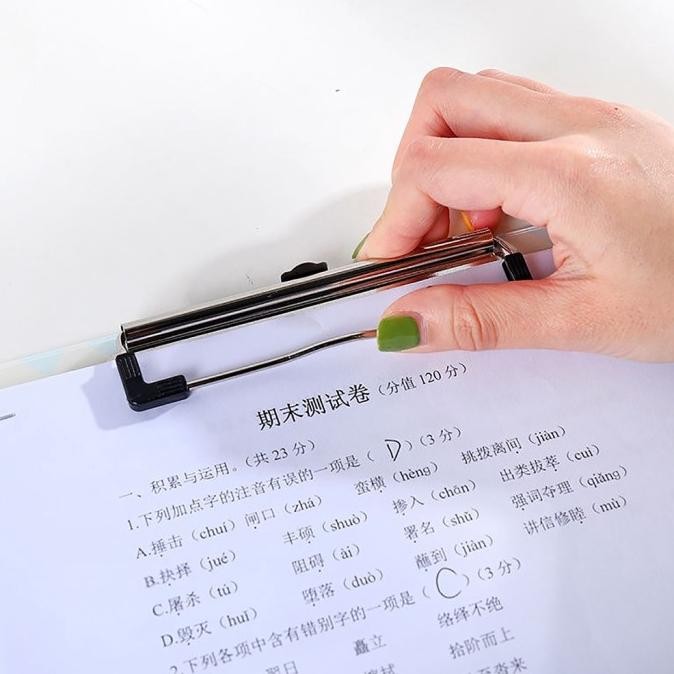 期末测试卷（分值 120 分）
一、积累与运用。（共 23 分）
1.下列加点字的注音有误的一项是（D）（3 分）
A.捶击（chuí） 闸口（zhá） 蛮横（hèng） 挑拨离间（jiàn）
B.抉择（jué） 丰硕（shuò） 掺入（chān） 出类拔萃（cuì）
C.屠杀（tú） 阻碍（ài） 署名（shǔ） 强词夺理（qiǎng）
D.毁灭（huǐ） 堕落（duò） 蘸到（jiàn） 讲信修睦（mù）
2.下列各项中含有错别字的一项是（C）（3 分）
矗立 络绎不绝
拾阶而上